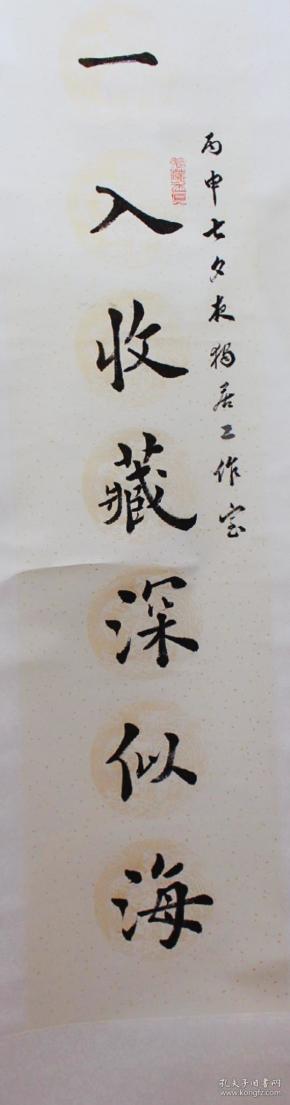 丙申七夕夜独居工作室
一入收藏深似海
孔夫子旧书网
www.kongfz.com